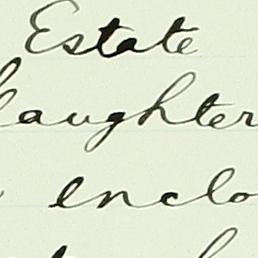 Estate
daughter
enclo